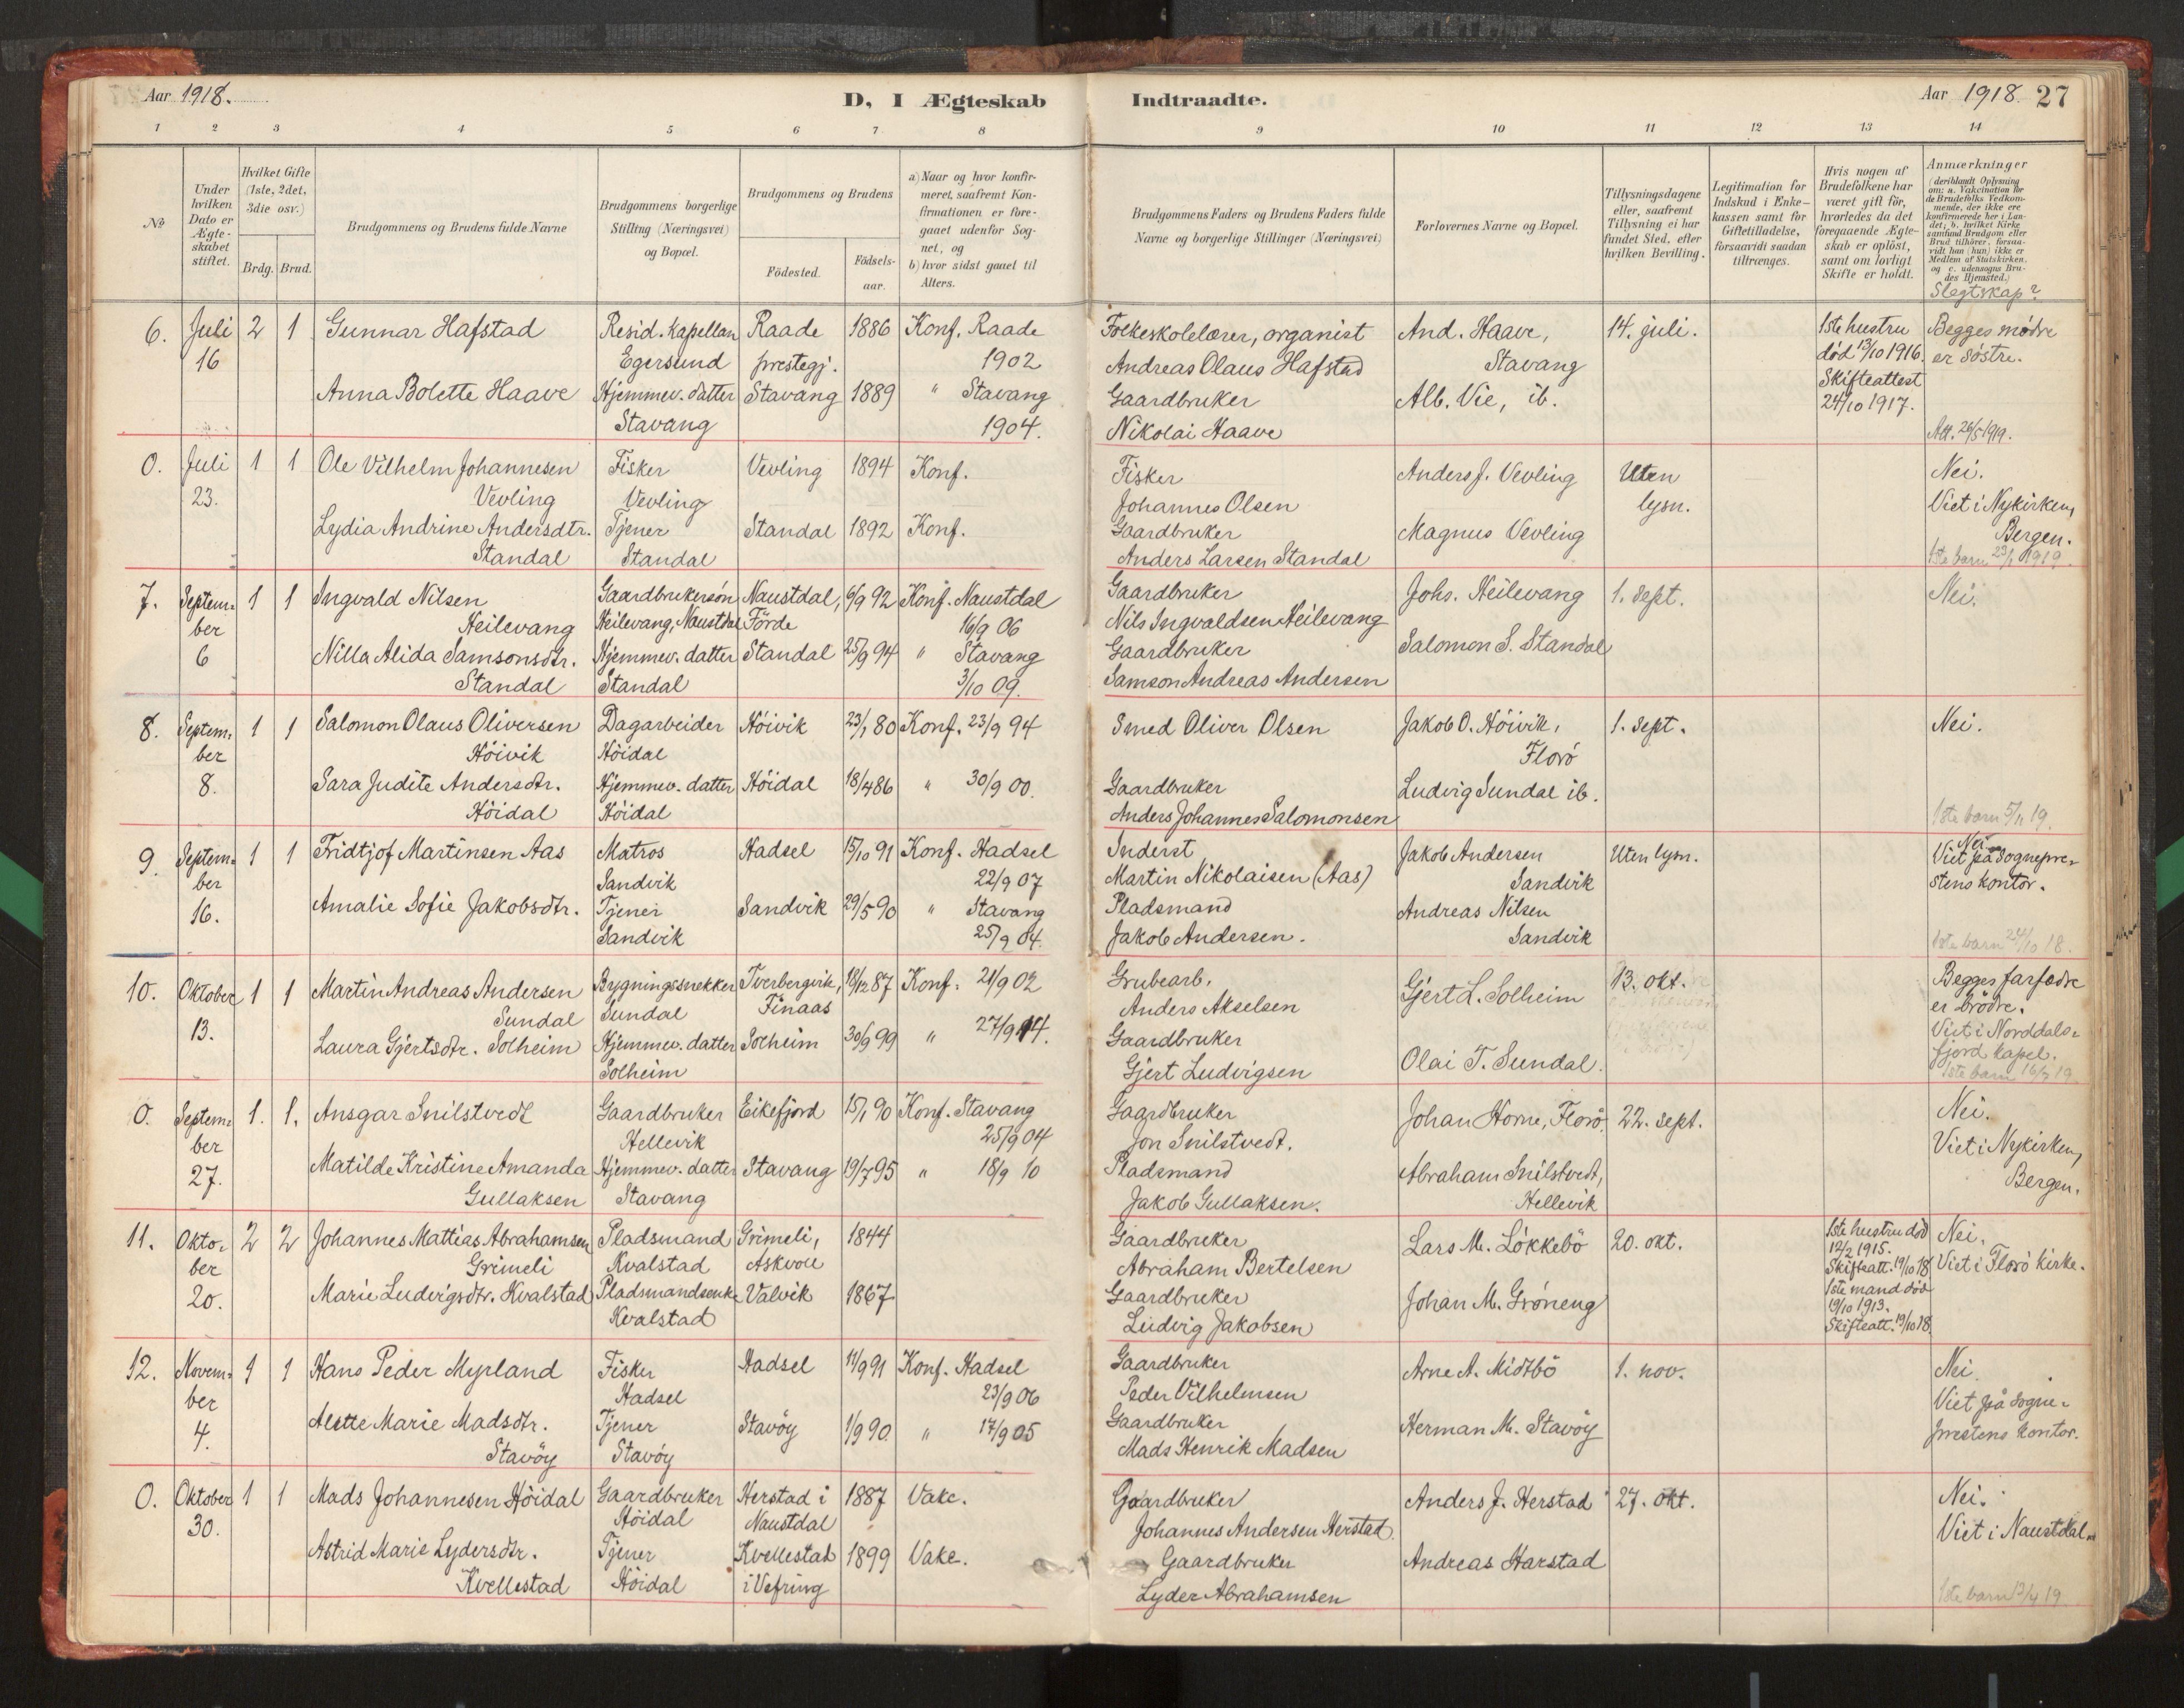 Aar 1918.
D, I Ægteskab
Indtraadte.
Aar 1918. 27
1 2 3 4 5 6 7 8 9 10 11 12 13 14
No
Under hvilken Dato er Ægte-skabet stiftet.
Hvilket Gifte (1ste, 2det, 3die osv.)
Brdg. Brud.
Brudgommens og Brudens fulde Navne
Brudgommens borgerlige Stilling (Næringsvei) og Bopæl.
Brudgommens og Brudens
Födested.
Födsels-aar.
a) Naar og hvor konfir-meret, saafremt Kon-firmationen er fore-gaaet udenfor Sog-net, og
b) hvor sidst gaaet til Alters.
Brudgommens Faders og Brudens Faders fulde Navne og borgerlige Stillinger (Næringsvei)
Forlovernes Navne og Bopæl.
Tillysningsdagene eller, saafremt Tillysning ei har fundet Sted, efter hvilken Bevilling.
Legitimation for Indskud i Enke-kassen samt for Giftetilladelse, forsaavidt saadan tiltrænges.
Hvis nogen af Brudefolkene har været gift för, hvorledes da det foregaaende Ægte-skab er oplöst, samt om lovligt Skifte er holdt.
Anmærkninger (deriblandt Oplysning om: a. Vakcination for de Brudefolks Vedkom-mende, der ikke ere konfirmerede her i Lan-det; b. hvilket Kirke samfund Brudgom eller Brud tilhörer, forsaa-vidt han (hun) ikke er Medlem af Statskirken, og c. udensogns Bru-des Hjemsted.)
Slegtskap?
6. Juli 2 1 Gunnar Hafstad Resid. Kapellan Raade 1886 Konf. Raade Folkeskolelærer, organist And. Haave, 14. juli. 1ste hustru Begges mødre
16 Egersund prestegj. 1902 Andreas Olaus Hafstad Stavang død 13/10 1916. er søstre.
Anna Bolette Haave Hjemmev. datter Stavang 1889 " Stavang Gaardbruker Alb. Vie, ib. Skifteattest
Stavang 1904. Nikolai Haave 24/10 1917. Att. 26/5 1919.
0. Juli 1 1 Ole Vilhelm Johannesen Fisker Vevling 1894 Konf. Fisker Anders J. Vevling Uten Nei.
23. Vevling Vevling Johannes Olsen lysn. Viet i Nykirken,
Lydia Andrine Andersdtr. Tjener Standal 1892 Konf. Gaardbruker Magnus Vevling Bergen.
Standal Standal Anders Larsen Standal 1ste barn 23/1 1919.
7. Septem- 1 1 Ingvald Nilsen Gaardbrukersøn Naustdal, 6/9 92 Konf. Naustdal Gaardbruker Johs. Heilevang 1. sept. Nei.
ber Heilevang Heilevang, Naustdal Förde 16/9 06 Nils Ingvaldsen Heilevang
6 Nilla Alida Samsonsdtr. Hjemmev. datter Standal 25/9 94 " Stavang Gaardbruker Salomon S. Standal
Standal Standal 3/10 09. Samson Andreas Andersen
8. Septem- 1 1 Salomon Olaus Oliversen Dagarbeider Höivik 23/1 80 Konf. 23/9 94 Smed Oliver Olsen Jakob O. Höivik, 1. sept. Nei.
ber Höivik Höidal Florö
8. Sara Judite Andersdtr. Hjemmev. datter Höidal 18/4 86 " 30/9 00. Gaardbruker Ludvig Sundal ib.
Höidal Höidal Anders Johannes Salomonsen 1ste barn 5/11 19.
9. Septem- 1 1 Fridtjof Martinsen Aas Matros Hadsel 15/10 91 Konf. Hadsel Inderst Jakob Andersen Uten lysn. Nei
ber Sandvik 22/9 07 Martin Nikolaisen (Aas) Sandvik Viet på sognepre-
16. Amalie Sofie Jakobsdtr. Tjener Sandvik 29/5 90 " Stavang Pladsmand Andreas Nilsen stens kontor.
Sandvik 25/9 04. Jakob Andersen. Sandvik 1ste barn 24/10 18.
10. Oktober 1 1 Martin Andreas Andersen Bygningssnekker Tverbergvik, 18/12 87 Konf. 21/9 02 Grubearb. Gjert L. Solheim 13. okt. Begges farfædre
13. Sundal Sundal Finaas Anders Akselsen er brödre.
Laura Gjertsdtr. Solheim Hjemmev. datter Solheim 30/9 99 " 27/9 14. Gaardbruker Viet i Norddals-
Solheim Gjert Ludvigsen Olai T. Sundal. fjord kapel.
1ste barn 16/7 19.
0. Septem- 1. 1. Ansgar Snilstvedt Gaardbruker Eikefjord 15/1 90 Konf. Stavang Gaardbruker Johan Horne, Florö. 22. sept. Nei.
ber Hellevik 25/9 04 Jon Snilstvedt. Viet i Nykirken,
27. Matilde Kristine Amanda Hjemmev. datter Stavang 19/7 95 " 18/9 10 Pladsmand Abraham Snilstvedt, Bergen.
Gullaksen Stavang Jakob Gullaksen. Hellevik
11. Okto- 2 2 Johannes Mattias Abrahamsen Pladsmand Grimeli, 1844 Gaardbruker Lars M. Lökkebö 20. okt. 1ste hustru död Nei.
ber Grimeli Kvalstad Askvoll Abraham Bertelsen 12/2 1915. Skifteatt. 19/10 18 Viet i Florö kirke.
20. Marie Ludvigsdtr. Kvalstad Pladsmandsenke Valvik 1867 Gaardbruker Johan M. Gröneng 1ste mand död
Kvalstad Ludvig Jakobsen 19/10 1913. Skifteatt. 19/10 18.
12. Novem- 1 1 Hans Peder Myrland Fisker Hadsel 11/9 91 Konf. Hadsel Gaardbruker Arne A. Midtbö 1. nov. Nei.
ber Hadsel 23/9 06 Peder Vilhelmsen Viet på sogne-
4. Alette Marie Madsdtr. Tjener Stavöy 1/9 90. " 17/9 05 Gaardbruker Herman M. Stavöy prestens kontor.
Stavöy Stavöy Mads Henrik Madsen
0. Oktober 1 1 Mads Johannesen Höidal Gaardbruker Herstad i 1887 Vake. Gaardbruker Anders J. Herstad 27. okt. Nei.
30. Höidal Naustdal Johannes Andersen Herstad. Viet i Naustdal.
Astrid Marie Lydersdtr. Tjener Kvellestad 1899 Vake. Gaardbruker Andreas Harstad
Kvellestad Höidal i Vefring Lyder Abrahamsen 1ste barn 13/4 19